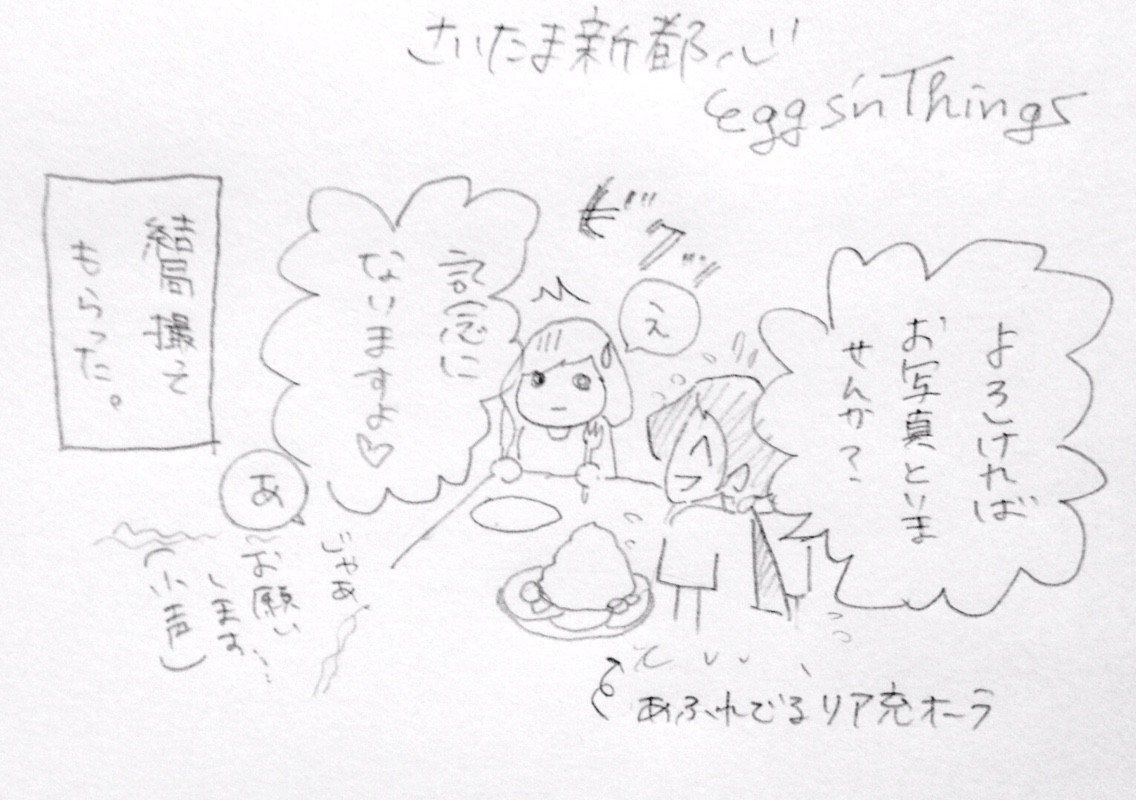 さいたま新都心
eggs'n Things
よろしければ
お写真といま
せんか?
え
ビクッ
記念に
ないますよ♡
あ
じゃあ
お願い
します…
(小声)
結局撮って
もらった。
あふれでるリア充オーラ